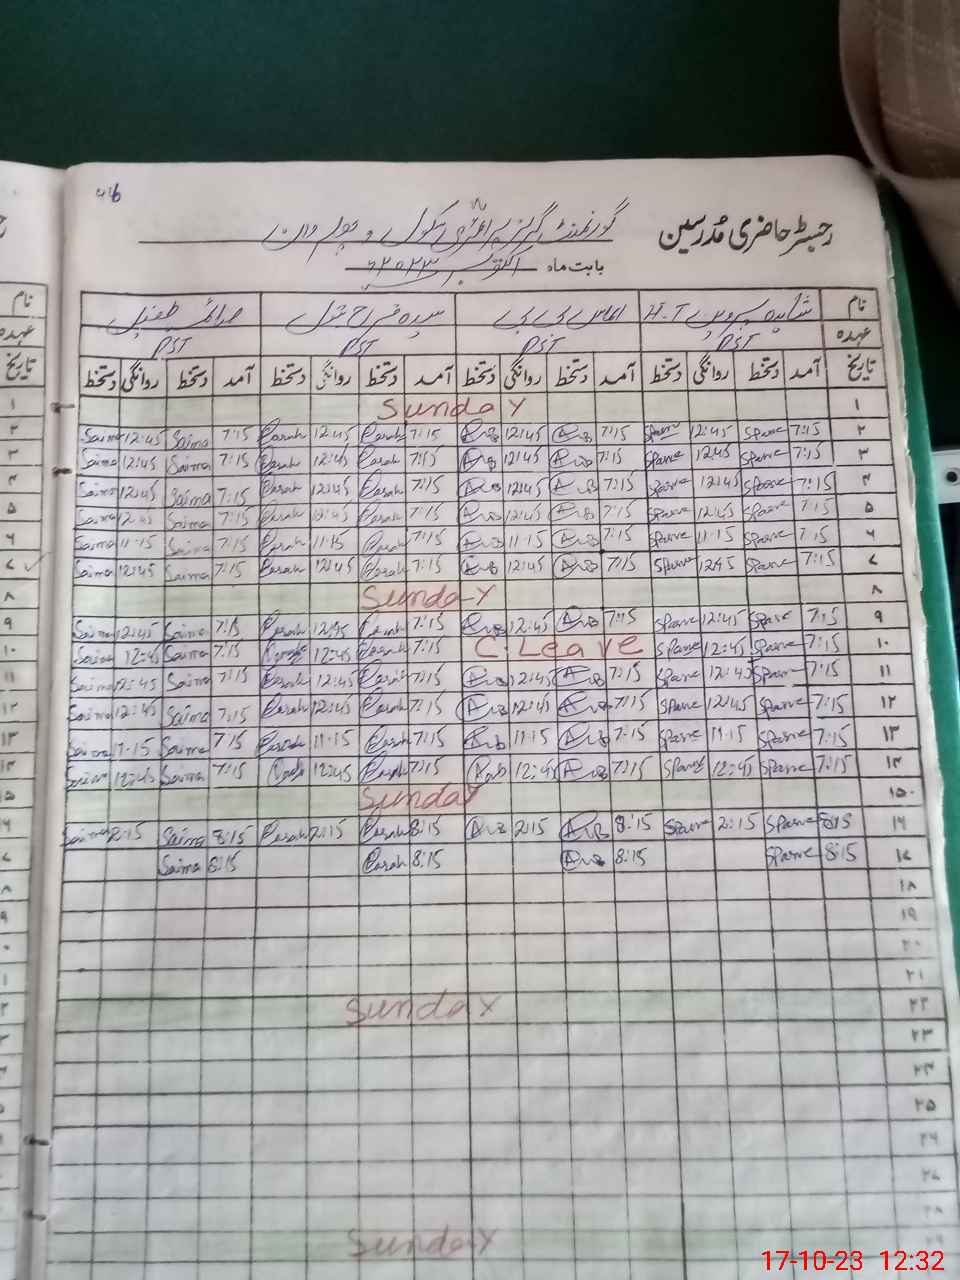 46
رجسٹر حاضری مدرسین گورنمنٹ گرلز پرائمری سکول
بابت ماہ اکتوبر ۲۰۲۳ء
نام شاہدہ پروین H.T سیدہ فرح بتول صائمہ طفیل
عہدہ PST PST PST PST
تاریخ آمد دستخط روانگی دستخط آمد دستخط روانگی دستخط آمد دستخط روانگی دستخط آمد دستخط روانگی دستخط
۱ Sunday
۲ 7:15 Sparve 12:45 Sparve 7:15 AvB 12:45 AvB 7:15 Farah 12:45 Farah 7:15 Saima 12:45 Saima
۳ 7:15 Sparve 12:45 Sparve 7:15 AvB 12:45 AvB 7:15 Farah 12:45 Farah 7:15 Saima 12:45 Saima
۴ 7:15 Sparve 12:45 Sparve 7:15 AvB 12:45 AvB 7:15 Farah 12:45 Farah 7:15 Saima 12:45 Saima
۵ 7:15 Sparve 12:45 Sparve 7:15 AvB 12:45 AvB 7:15 Farah 12:45 Farah 7:15 Saima 12:45 Saima
۶ 7:15 Sparve 11:15 Sparve 7:15 AvB 11:15 AvB 7:15 Farah 11:15 Farah 7:15 Saima 11:15 Saima
۷ 7:15 Sparve 12:45 Sparve 7:15 AvB 12:45 AvB 7:15 Farah 12:45 Farah 7:15 Saima 12:45 Saima
۸ Sunday
۹ 7:15 Sparve 12:45 Sparve 7:15 AvB 12:45 AvB 7:15 Farah 12:45 Farah 7:15 Saima 12:45 Saima
۱۰ 7:15 Sparve 12:45 Sparve C. Leave 7:15 Farah 12:45 Farah 7:15 Saima 12:45 Saima
۱۱ 7:15 Sparve 12:45 Sparve 7:15 AvB 12:45 AvB 7:15 Farah 12:45 Farah 7:15 Saima 12:45 Saima
۱۲ 7:15 Sparve 12:45 Sparve 7:15 AvB 12:45 AvB 7:15 Farah 12:45 Farah 7:15 Saima 12:45 Saima
۱۳ 7:15 Sparve 11:15 Sparve 7:15 AvB 11:15 AvB 7:15 Farah 11:15 Farah 7:15 Saima 11:15 Saima
۱۴ 7:15 Sparve 12:45 Sparve 7:15 AvB 12:45 AvB 7:15 Farah 12:45 Farah 7:15 Saima 12:45 Saima
۱۵ Sunday
۱۶ 8:15 Sparve 2:15 Sparve 8:15 AvB 2:15 AvB 8:15 Farah 2:15 Farah 8:15 Saima 2:15 Saima
۱۷ 8:15 Sparve 8:15 AvB 8:15 Farah 8:15 Saima
۱۸
۱۹
۲۰
۲۱
۲۲ Sunday
۲۳
۲۴
۲۵
۲۶
۲۷
۲۸
۲۹ Sunday
17-10-23 12:32